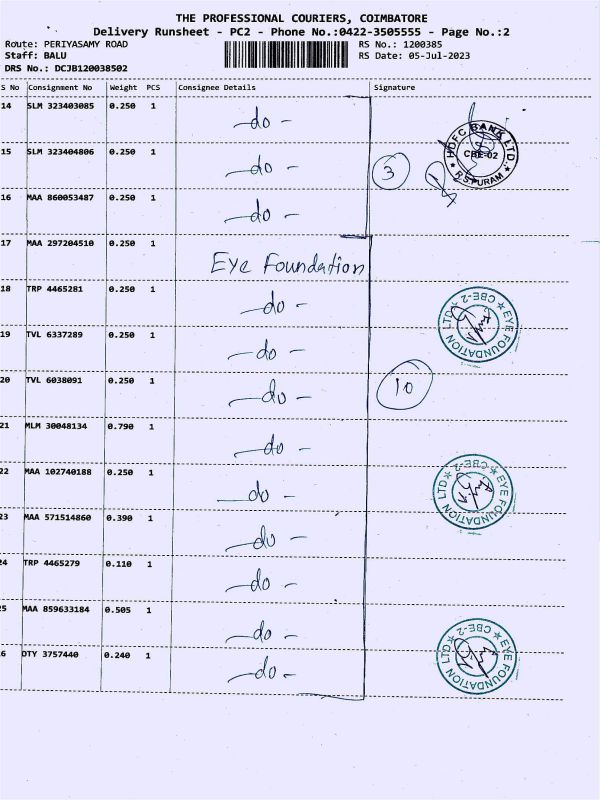 THE PROFESSIONAL COURIERS, COIMBATORE
Delivery Runsheet - PC2 - Phone No.:0422-3505555 - Page No.:2
Route: PERIYASAMY ROAD RS No.: 1200385
Staff: BALU RS Date: 05-Jul-2023
DRS No.: DCJB120038502
S No Consignment No Weight PCS Consignee Details Signature
14 SLM 323403085 0.250 1 -do-
15 SLM 323404806 0.250 1 -do- 3
HDFC BANK LTD. CBE-02 R.S.PURAM
16 MAA 860053487 0.250 1 -do-
17 MAA 297204510 0.250 1 Eye Foundation
18 TRP 4465281 0.250 1 -do-
EYE FOUNDATION LTD CBE-2
19 TVL 6337289 0.250 1 -do-
20 TVL 6038091 0.250 1 -do- 10
21 MLM 30048134 0.790 1 -do-
22 MAA 102740188 0.250 1 -do-
EYE FOUNDATION LTD CBE-2
23 MAA 571514860 0.390 1 -do-
24 TRP 4465279 0.110 1 -do-
25 MAA 859633184 0.505 1 -do-
6 DTY 3757440 0.240 1 -do-
EYE FOUNDATION LTD CBE-2